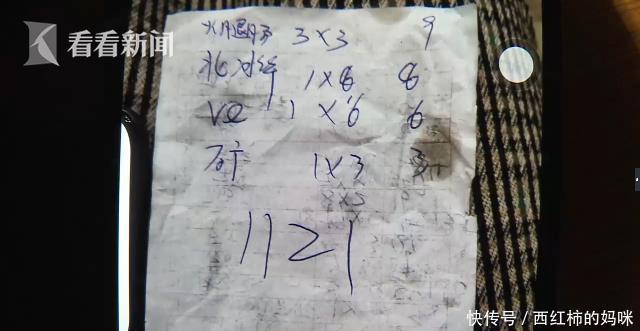 看看新闻
火腿肠 3×3 9
1×8 8
VC 1 × 6 6
矿 1×3 3
1121
快传号／西红柿的妈咪